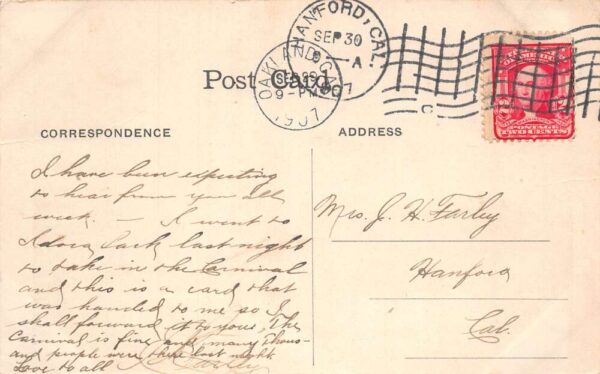 HANFORD, CAL.
SEP 30
9 - A
1907
OAKLAND, CAL.
SEP 29
9-PM
1907
C
POSTAGE
TWO CENTS
Post Card
CORRESPONDENCE
ADDRESS
I have been expecting
to hear from you all
week. — I went to
Idora Park last night
to take in the Carnival
and this is a card that
was handed to me so I
shall forward it to yours, The
Carnival is fine and many Thous-
and people were there last night
Love to all Farley
Mrs. J. H. Farley
Hanford
Cal.